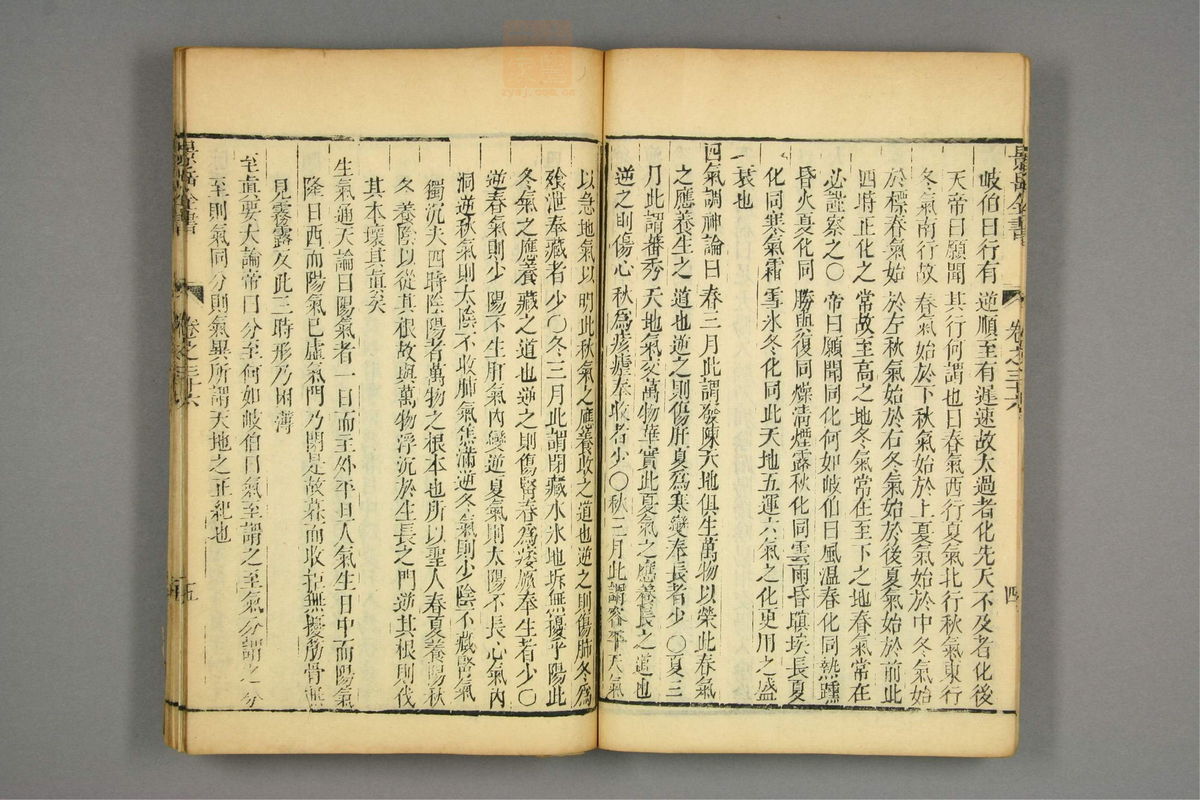 景岳全書
卷之三十六
四
岐伯曰行有逆順至有遲速故太過者化先天不及者化後
天帝曰願聞其行何謂也曰春氣西行夏氣北行秋氣東行
冬氣南行故春氣始於下秋氣始於上夏氣始於中冬氣始
於標春氣始於左秋氣始於右冬氣始於後夏氣始於前此
四時正化之常故至高之地冬氣常在至下之地春氣常在
必謹察之〇帝曰願聞同化何如岐伯曰風溫春化同熱曛
昏火夏化同勝與復同燥清煙露秋化同雲雨昏瞑埃長夏
化同寒氣霜雪氷冬化同此天地五運六氣之化更用之盛
衰也
四氣調神論曰春三月此謂發陳天地俱生萬物以榮此春氣
之應養生之道也逆之則傷肝夏爲寒變奉長者少〇夏三
月此謂蕃秀天地氣交萬物華實此夏氣之應養長之道也
逆之則傷心秋爲痎瘧奉收者少〇秋三月此謂容平天氣
以急地氣以明此秋氣之應養收之道也逆之則傷肺冬爲
飱泄奉藏者少〇冬三月此謂閉藏水氷地坼無擾乎陽此
冬氣之應養藏之道也逆之則傷腎春爲痿厥奉生者少〇
逆春氣則少陽不生肝氣內變逆夏氣則太陽不長心氣內
洞逆秋氣則太陰不收肺氣焦滿逆冬氣則少陰不藏腎氣
獨沉夫四時陰陽者萬物之根本也所以聖人春夏養陽秋
冬養陰以從其根故與萬物浮沉於生長之門逆其根則伐
其本壞其眞矣
生氣通天論曰陽氣者一日而主外平旦人氣生日中而陽氣
隆日西而陽氣已虛氣門乃閉是故暮而收拒無擾筋骨無
見霧露反此三時形乃困薄
至眞要大論帝曰分至何如岐伯曰氣至謂之至氣分謂之分
至則氣同分則氣異所謂天地之正紀也
景岳全書
卷之三十六
五